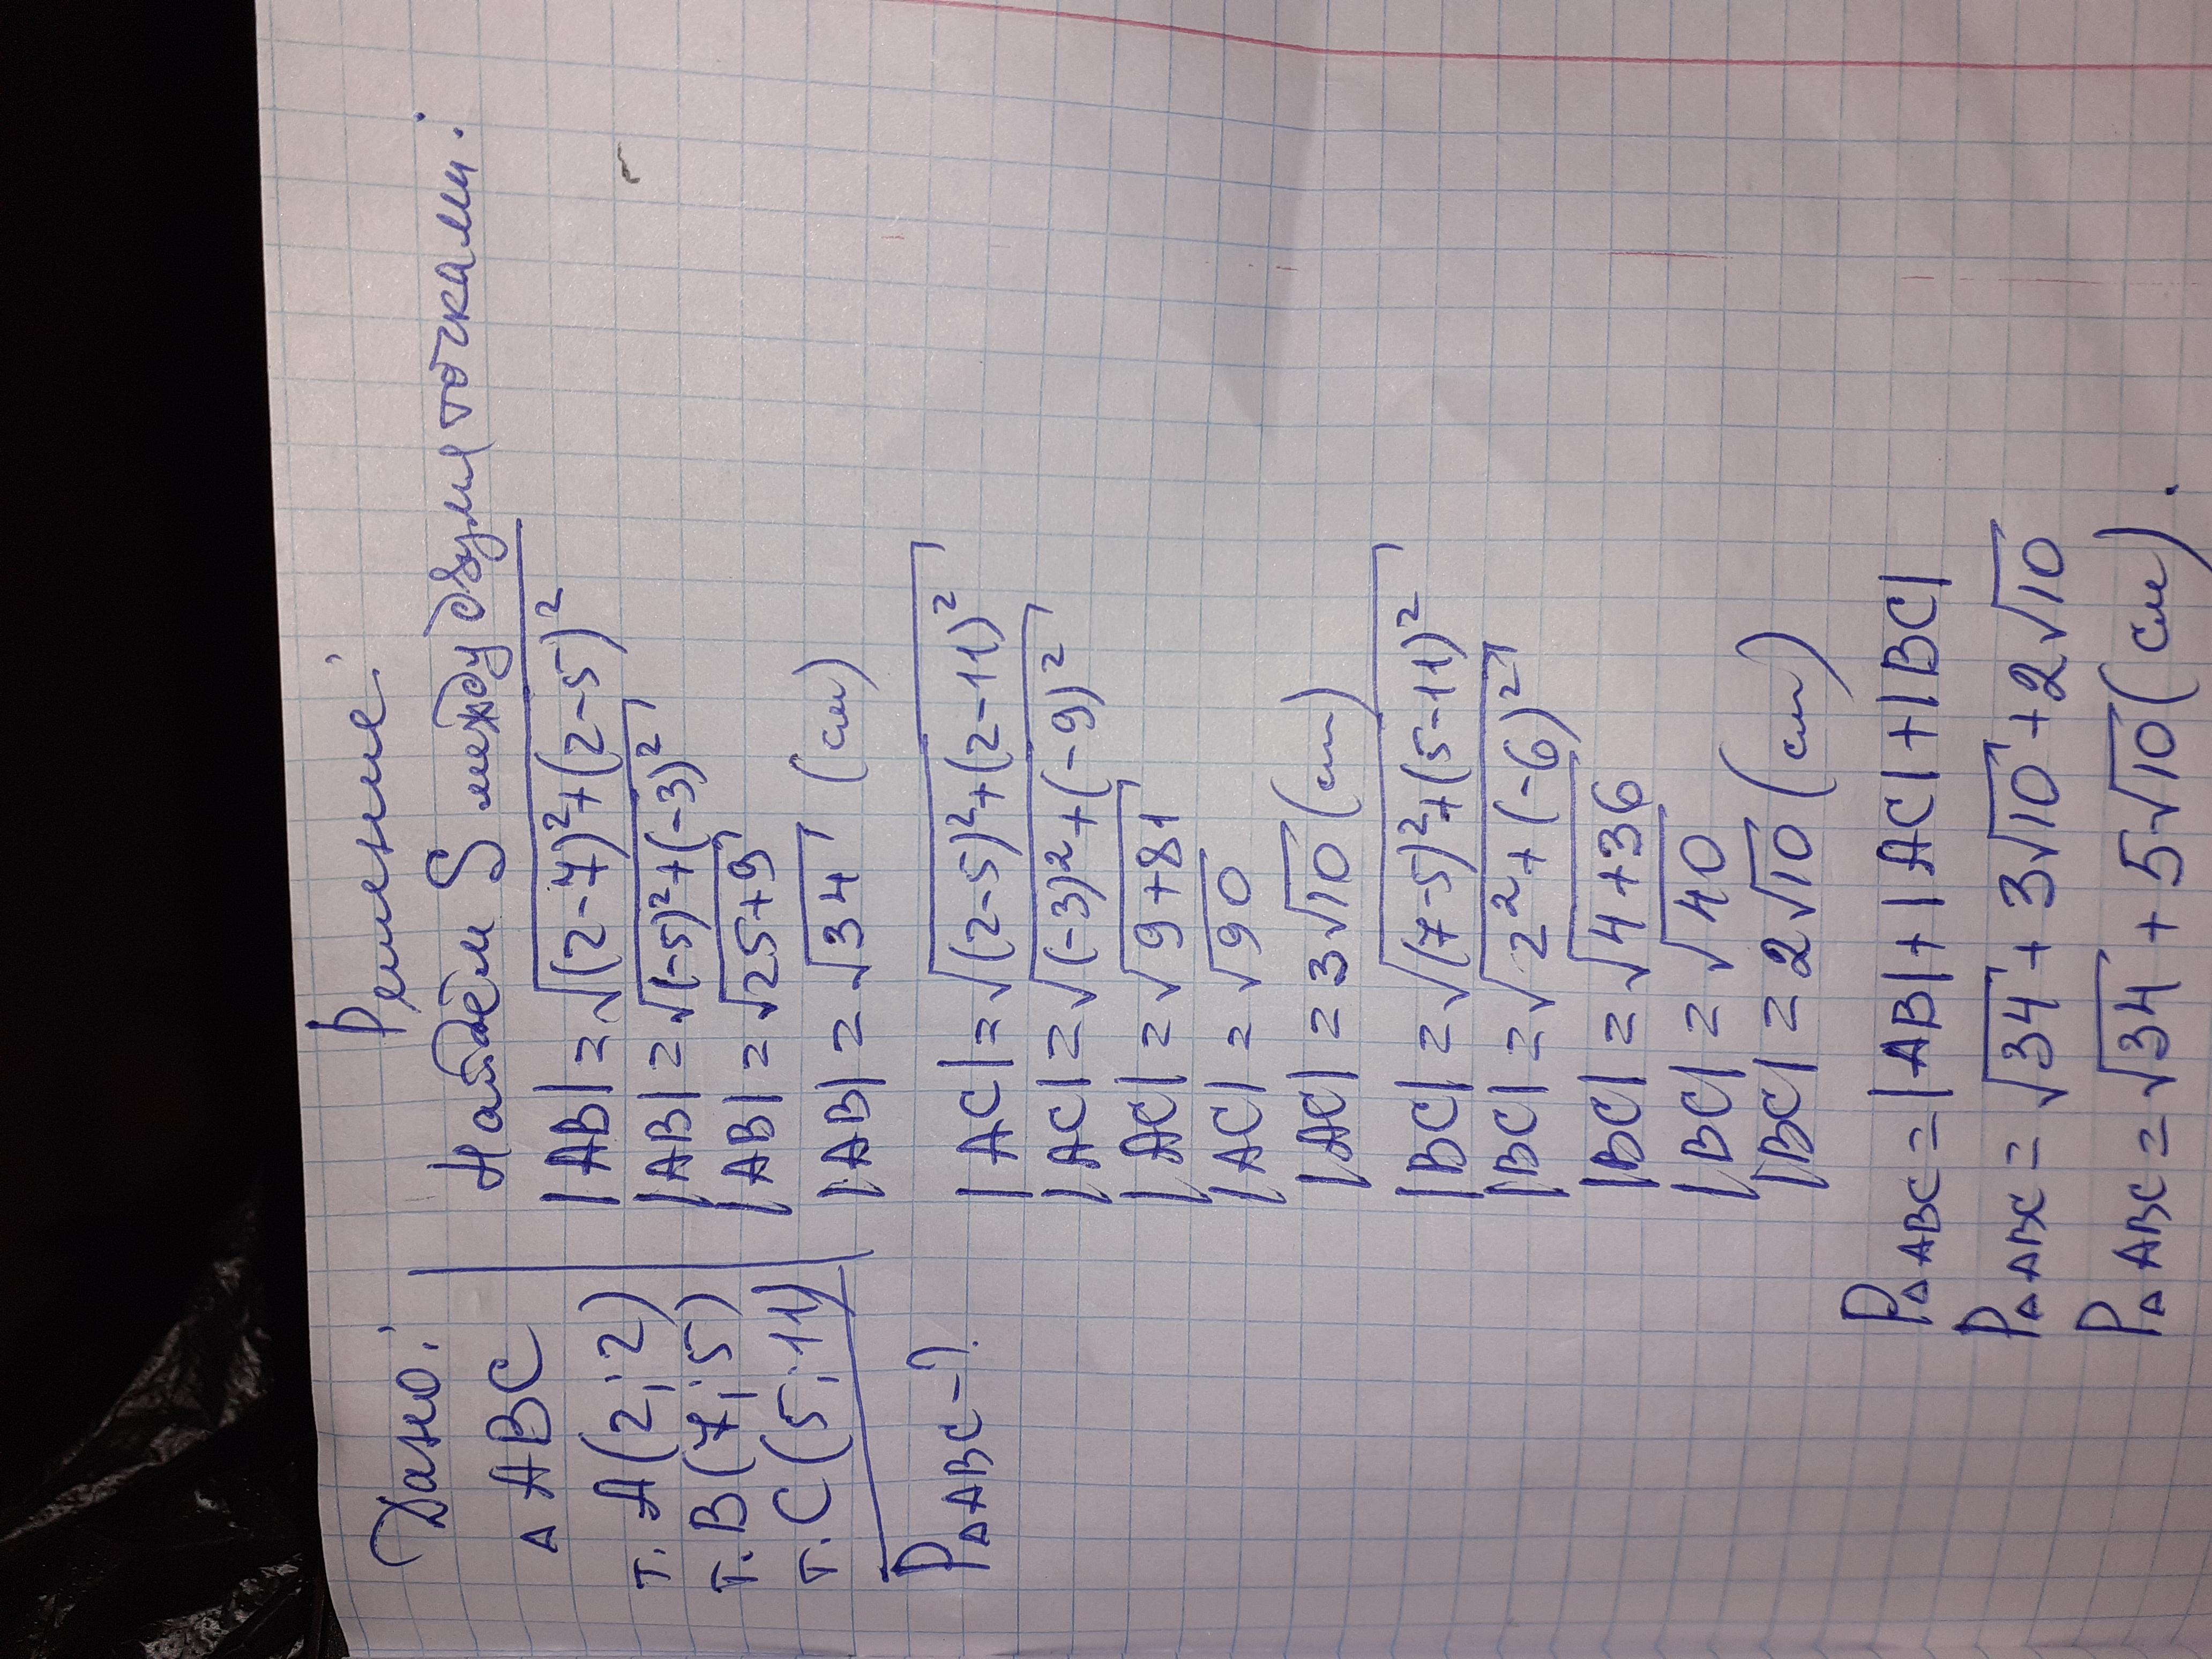 Дано:
△ ABC
т. A(2; 2)
т. B(7; 5)
т. C(5; 11)
P△ABC - ?
Решение:
Найдём S между двумя точками:
|AB| = √(2-7)²+(2-5)²
|AB| = √(-5)²+(-3)²
|AB| = √25+9
|AB| = √34 (см)
|AC| = √(2-5)²+(2-11)²
|AC| = √(-3)²+(-9)²
|AC| = √9+81
|AC| = √90
|AC| = 3√10 (см)
|BC| = √(7-5)²+(5-11)²
|BC| = √2²+(-6)²
|BC| = √4+36
|BC| = √40
|BC| = 2√10 (см)
P△ABC = |AB|+|AC|+|BC|
P△ABC = √34 + 3√10 + 2√10
P△ABC = √34 + 5√10 (см).